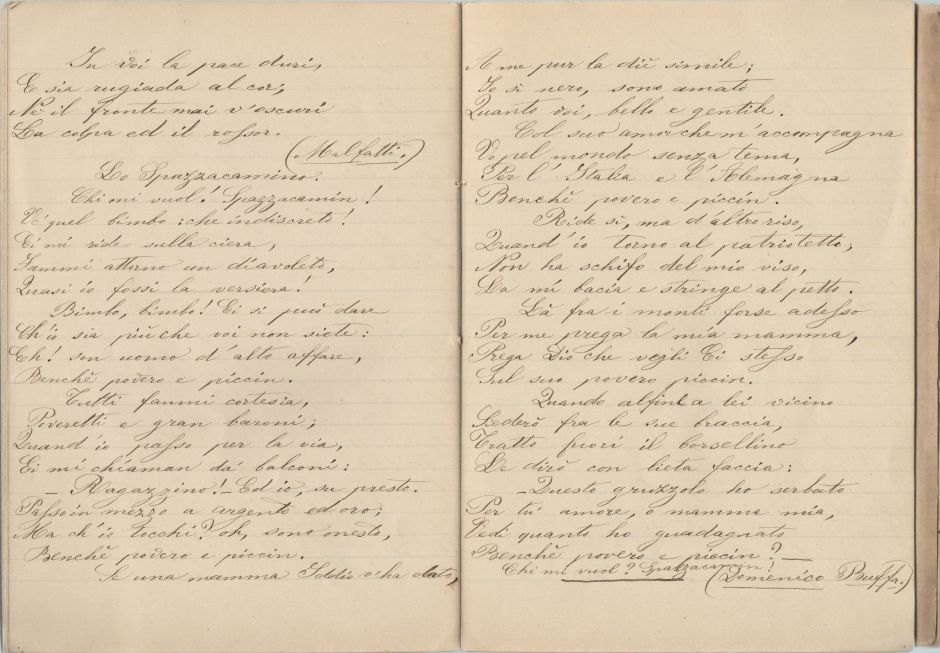 In voi la pace duri,
E sia rugiada al cor;
Nè il fronte mai v'oscuri
La colpa ed il rossor.
(Malfatti.)
Lo Spazzacamino.
Chi mi vuol! Spazzacamin!
Ve' quel bimbo: che indiscreto!
Ei mi ride sulla ciera,
Fammi attorno un diavoleto,
Quasi io fossi la versiera!
Bimbo, bimbo! Ei si può dare
Ch'io sia più che voi non siete:
Eh! son uomo d'alto affare,
Benchè povero e piccin.
Tutti fanmi cortesia,
Poveretti e gran baroni;
Quand'io passo per la via,
Ei mi chiaman da' balconi:
— Ragazzino! — Ed io, su presto.
Passo in mezzo a argento ed oro;
Ma ch'io tocchi? oh, sono onesto,
Benchè povero e piccin.
Se una mamma Iddio v'ha dato,
A me pur la diè simile;
Io sì nero, sono amato
Quanto voi, bello e gentile.
Col suo amor che m'accompagna
Vo pel mondo senza tema,
Per l'Italia e l'Alemagna
Benchè povero e piccin.
Ride sì, ma d'altro riso,
Quand'io torno al patrio tetto,
Non ha schifo del mio viso,
Da mi bacia e stringe al petto.
Là fra i monti forse adesso
Per me prega la mia mamma,
Prega Dio che vegli Ei stesso
Sul suo povero piccin.
Quando alfin a lei vicino
Sederò fra le sue braccia,
Tratto fuori il borsellino
Le dirò con lieta faccia:
— Questo gruzzolo ho serbato
Per tu' amore, o mamma mia,
Vedi quanto ho guadagnato
Benchè povero e piccin? —
Chi mi vuol? Spazzacamin!
(Domenico Buffa.)